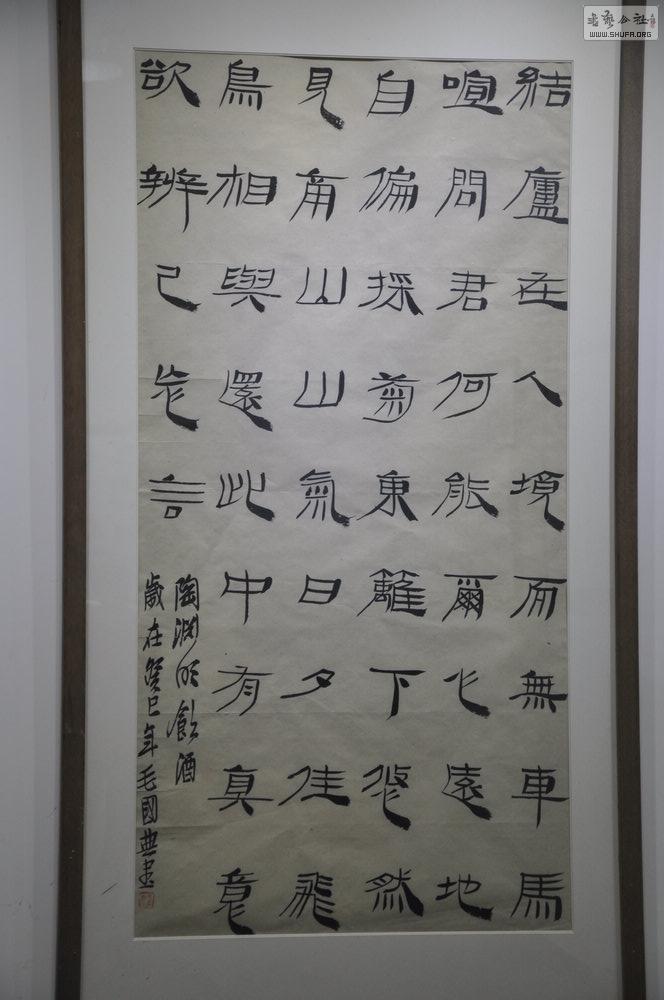 結廬在人境而無車馬
喧問君何能爾心遠地
自偏採菊東籬下悠然
見南山山氣日夕佳飛
鳥相與還此中有真意
欲辨已忘言
陶淵明飲酒
歲在癸巳年毛國典書
書藝公社
WWW.SHUFA.ORG